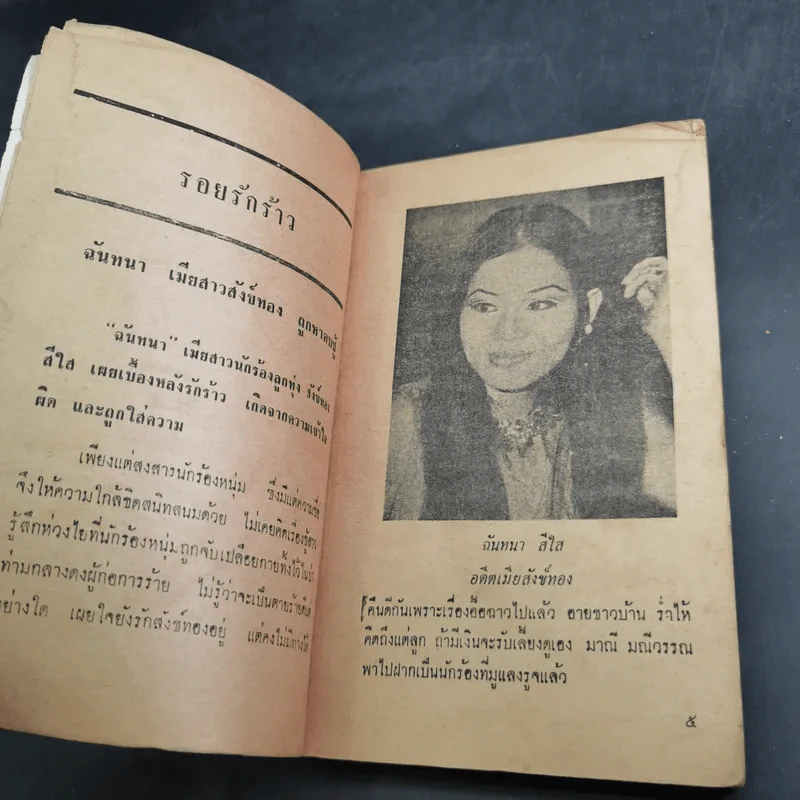 รอยรักร้าว
ฉันทนา เมียสาวสังข์ทอง ถูกหาคบชู้
"ฉันทนา" เมียสาวนักร้องลูกทุ่ง สังข์ทอง
สีใส เผยเบื้องหลังรักร้าว เกิดจากความเข้าใจ
ผิด และถูกใส่ความ
เพียงแต่สงสารนักร้องหนุ่ม ซึ่งมีแต่ความ
จึงให้ความใกล้ชิดสนิทสนมด้วย ไม่เคยคิดเรื่องชู้สาว
รู้สึกห่วงใยที่นักร้องหนุ่มถูกจับเปลือยกายทิ้งไว้ในป่า
ท่ามกลางดงผู้ก่อการร้าย ไม่รู้ว่าจะเป็นตายร้ายดี
อย่างใด เผยใจยังรักสังข์ทองอยู่ แต่คงไม่มีทางได้
ฉันทนา สีใส
อดีตเมียสังข์ทอง
คืนดีกันเพราะเรื่องอื้อฉาวไปแล้ว อายชาวบ้าน ร่ำไห้
คิดถึงแต่ลูก ถ้ามีเงินจะรับเลี้ยงดูเอง มาณี มณีวรรณ
พาไปฝากเป็นนักร้องที่มูแลงรูจแล้ว
๕